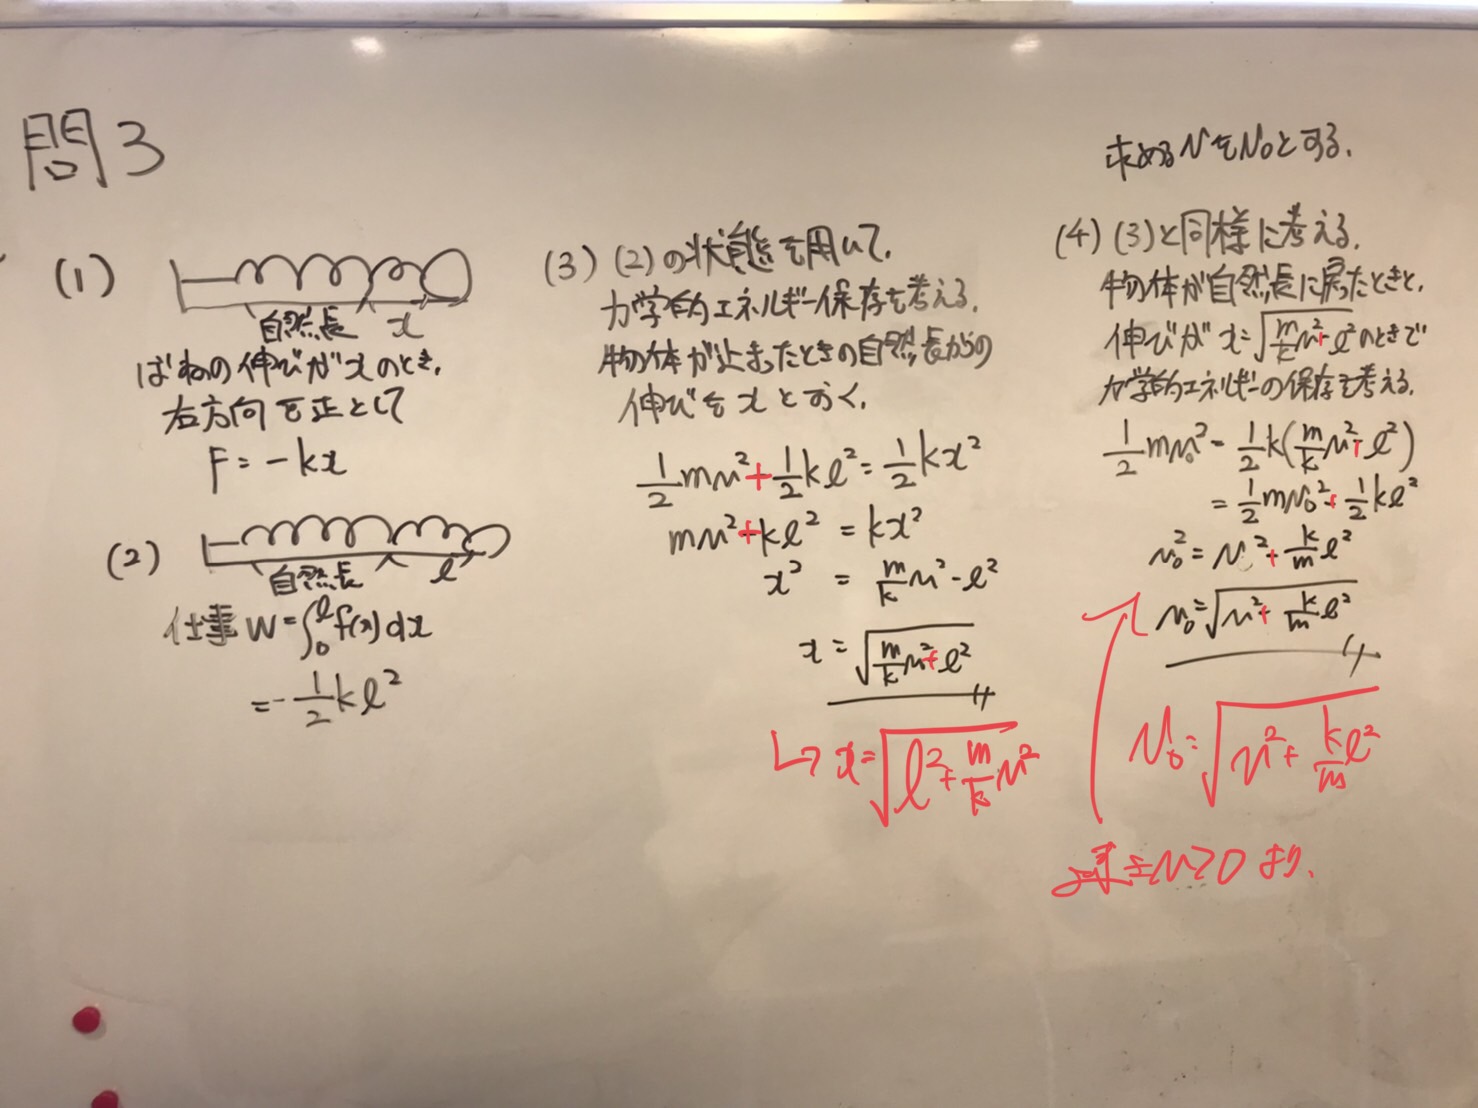 問3
(1)
自然長 x
ばねの伸びがxのとき,
右方向を正として
F = -kx
(2)
自然長 l
仕事 W = ∫₀ˡ f(x) dx
= -1/2 kl²
(3) (2)の状態を用いて,
力学的エネルギー保存を考える.
物体が止まったときの自然長からの
伸びをxとおく.
1/2 mv² + 1/2 kl² = 1/2 kx²
mv² + kl² = kx²
x² = m/k v² - l²
x = √(m/k v² + l²)
↳ x = √(l² + m/k v²)
求めるvをv₀とする.
(4) (3)と同様に考える.
物体が自然長に戻ったときと,
伸びが x = √(m/k v² + l²) のときで
力学的エネルギーの保存を考える.
1/2 mv₀² = 1/2 k(m/k v² + l²)
= 1/2 mv₀² + 1/2 kl²
v₀² = v² + k/m l²
v₀ = √(v² + k/m l²)
v₀ = √(v² + k/m l²)
v>0 より.